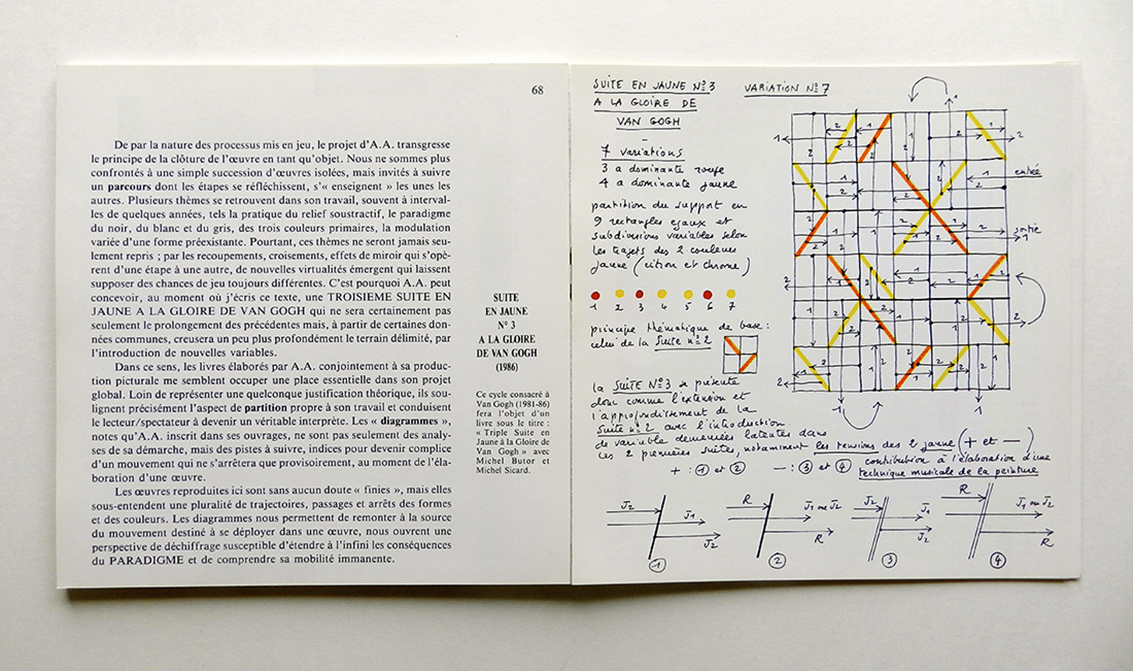 68
De par la nature des processus mis en jeu, le projet d'A.A. transgresse
le principe de la clôture de l'œuvre en tant qu'objet. Nous ne sommes plus
confrontés à une simple succession d'œuvres isolées, mais invités à suivre
un parcours dont les étapes se réfléchissent, s'« enseignent » les unes les
autres. Plusieurs thèmes se retrouvent dans son travail, souvent à interval-
les de quelques années, tels la pratique du relief soustractif, le paradigme
du noir, du blanc et du gris, des trois couleurs primaires, la modulation
variée d'une forme préexistante. Pourtant, ces thèmes ne seront jamais seu-
lement repris ; par les recoupements, croisements, effets de miroir qui s'opè-
rent d'une étape à une autre, de nouvelles virtualités émergent qui laissent
supposer des chances de jeu toujours différentes. C'est pourquoi A.A. peut
concevoir, au moment où j'écris ce texte, une TROISIEME SUITE EN
JAUNE A LA GLOIRE DE VAN GOGH qui ne sera certainement pas
seulement le prolongement des précédentes mais, à partir de certaines don-
nées communes, creusera un peu plus profondément le terrain délimité, par
l'introduction de nouvelles variables.
Dans ce sens, les livres élaborés par A.A. conjointement à sa produc-
tion picturale me semblent occuper une place essentielle dans son projet
global. Loin de représenter une quelconque justification théorique, ils sou-
lignent précisément l'aspect de partition propre à son travail et conduisent
le lecteur/spectateur à devenir un véritable interprète. Les « diagrammes »,
notes qu'A.A. inscrit dans ses ouvrages, ne sont pas seulement des analy-
ses de sa démarche, mais des pistes à suivre, indices pour devenir complice
d'un mouvement qui ne s'arrêtera que provisoirement, au moment de l'éla-
boration d'une œuvre.
Les œuvres reproduites ici sont sans aucun doute « finies », mais elles
sous-entendent une pluralité de trajectoires, passages et arrêts des formes
et des couleurs. Les diagrammes nous permettent de remonter à la source
du mouvement destiné à se déployer dans une œuvre, nous ouvrent une
perspective de déchiffrage susceptible d'étendre à l'infini les conséquences
du PARADIGME et de comprendre sa mobilité immanente.
SUITE
EN JAUNE
N° 3
A LA GLOIRE
DE VAN GOGH
(1986)
Ce cycle consacré à
Van Gogh (1981-86)
fera l'objet d'un
livre sous le titre :
« Triple Suite en
Jaune à la Gloire de
Van Gogh » avec
Michel Butor et
Michel Sicard.
SUITE EN JAUNE N° 3
A LA GLOIRE DE
VAN GOGH
VARIATION N° 7
7 variations
3 a dominante rouge
4 a dominante jaune
partition du support en
9 rectangles egaux et
subdivisions variables selon
les trajets des 2 couleurs
jaune (citron et chrome)
1 2 3 4 5 6 7
principe thématique de base :
celui de la Suite n° 2
la SUITE N° 3 se présente
donc comme l'extension et
l'approfondissement de la
Suite n° 2 avec l'introduction
de variable demeurées latentes dans
les 2 premières suites, notamment les tensions des 2 jaune (+ et −)
+ : 1 et 2 − : 3 et 4
contribution à l'élaboration d'une
technique musicale de la peinture
entrée
sortie
J2 J1 J2 1
R J1 ou J2 R 2
J2 J1 J2 3
R J1 ou J2 R 4